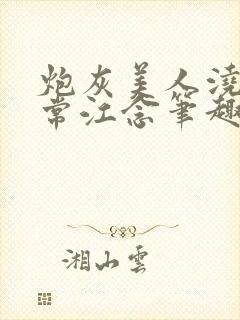 炮灰美人澆
常江念筆趣
湘山雲